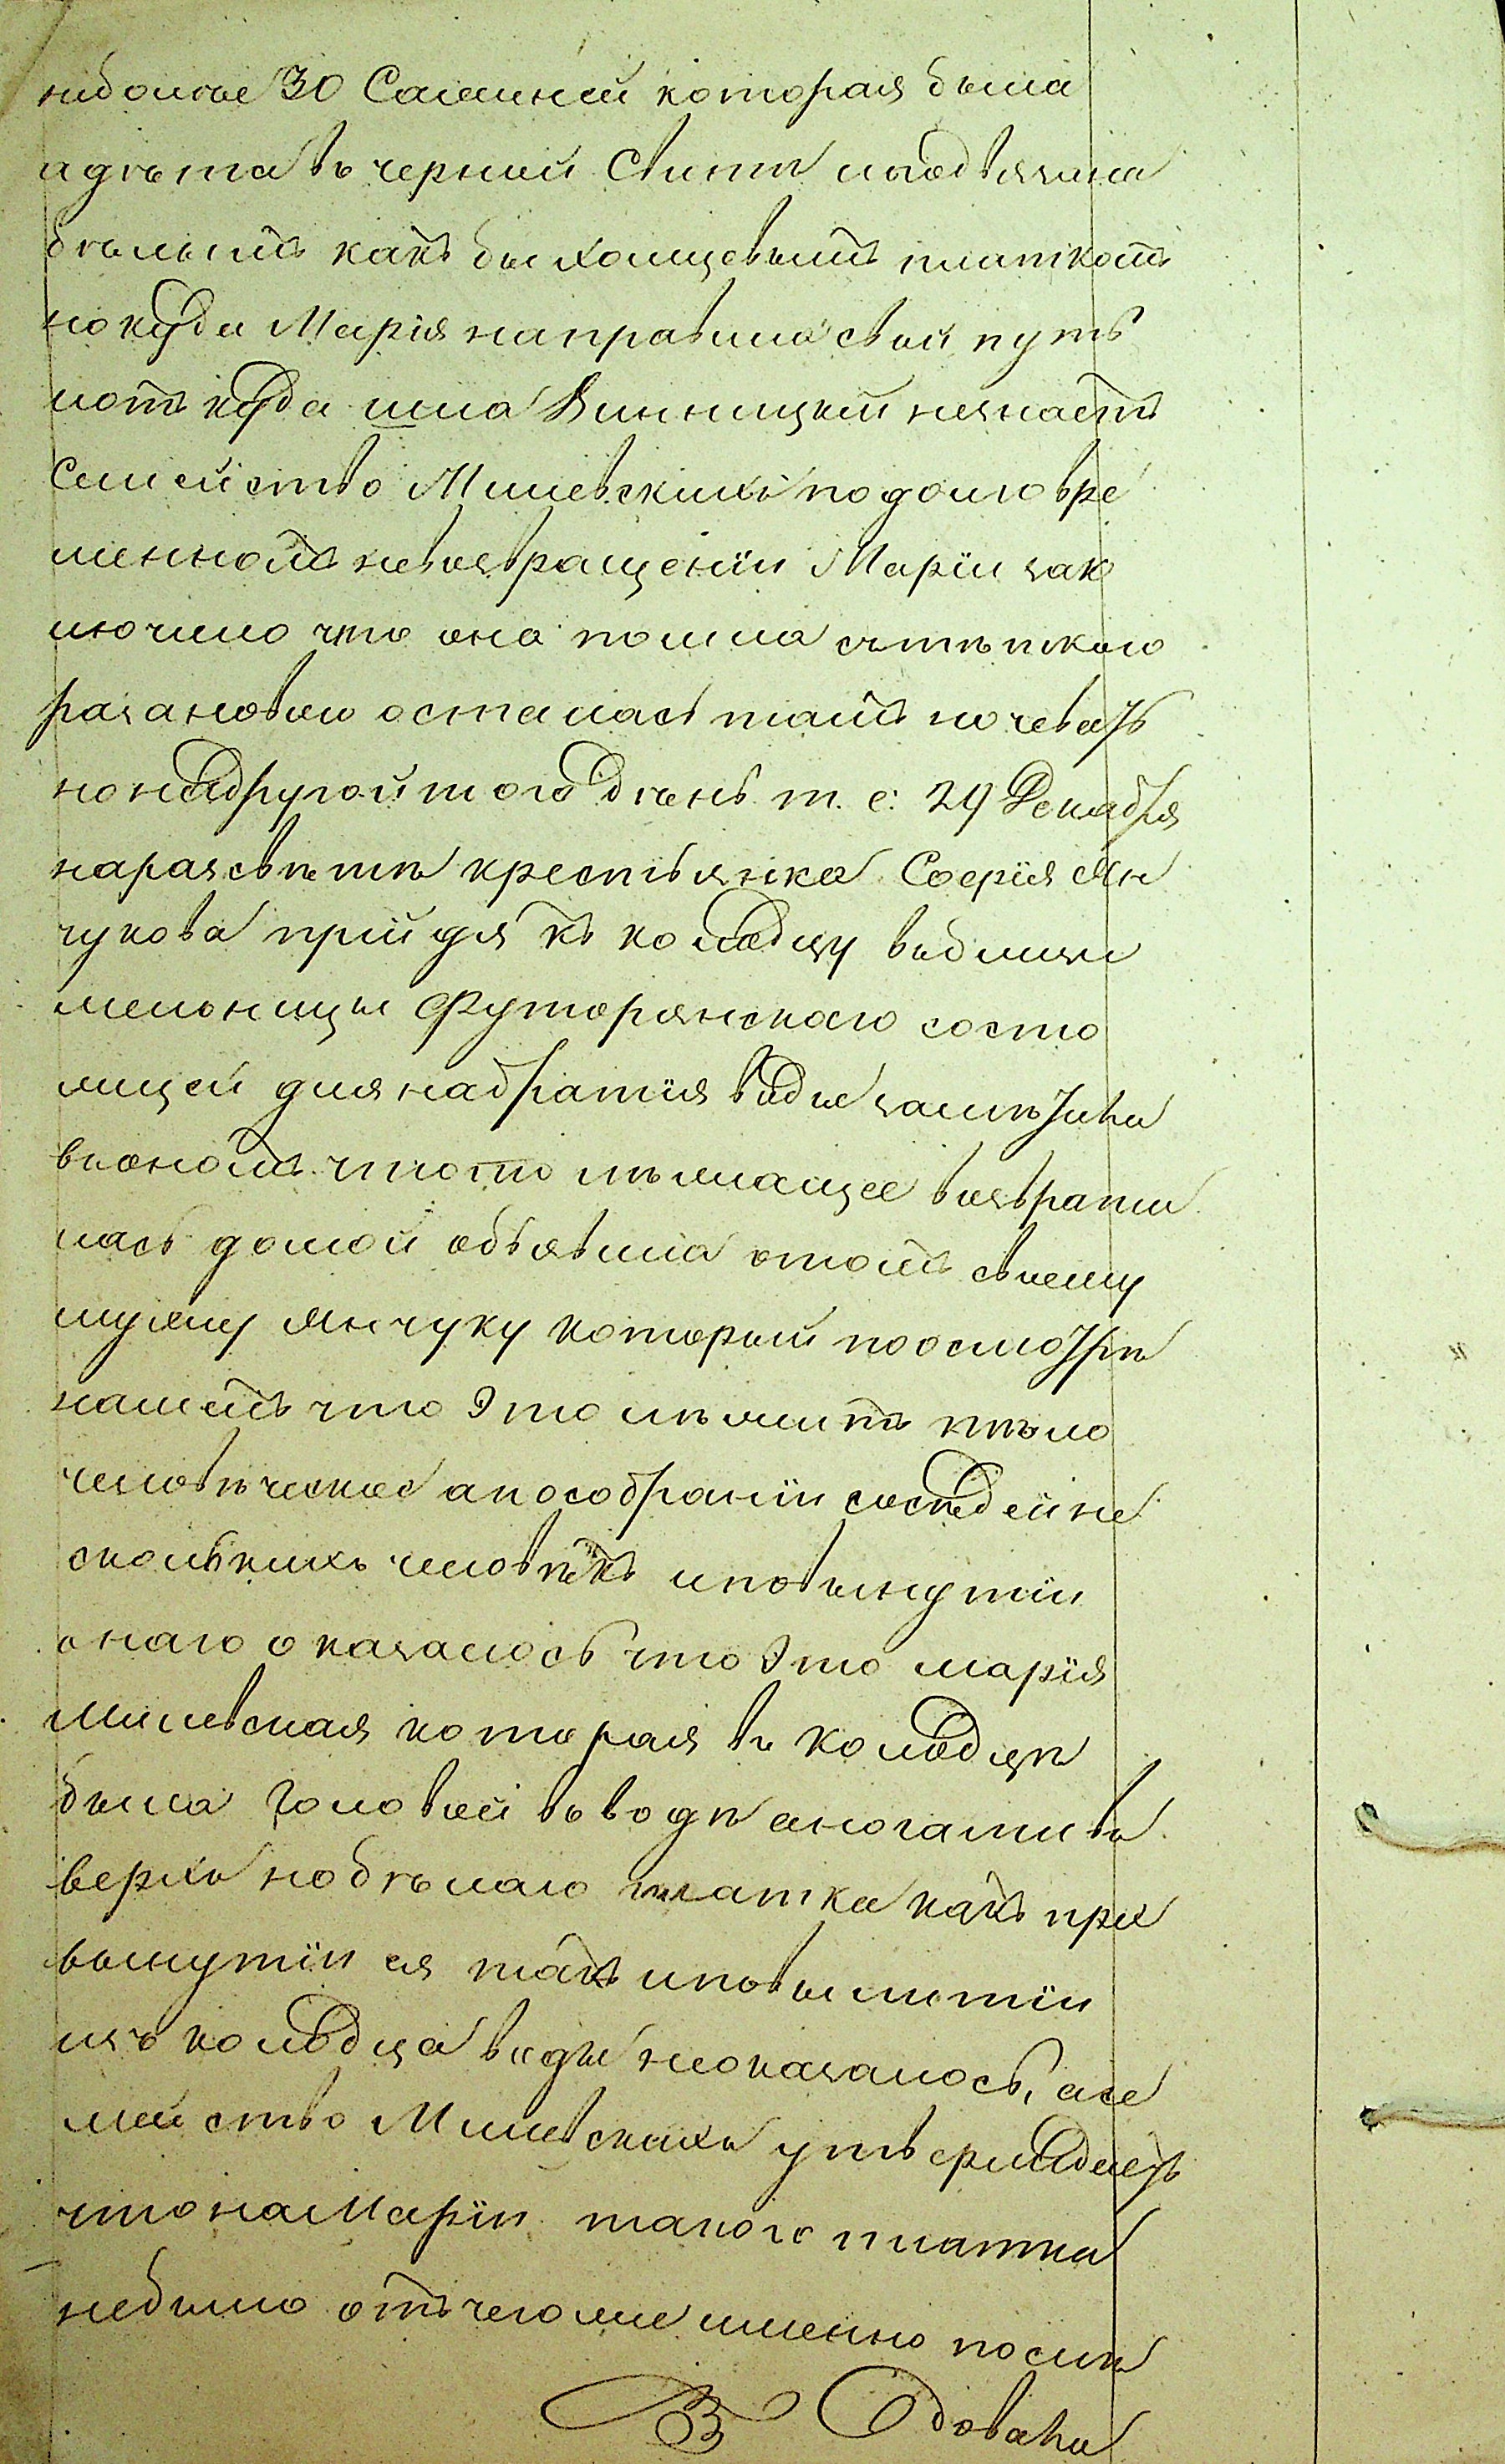 неболѣе 30 Саженей которая была
адѣта въ черной Свитѣ иподвязана
бѣлымъ какъ бы холщевымъ платкомъ
но куда Марія направила свой путь
иотъ куда шла Винницкій незнаетъ
Семейство Милевскихъ по долговре
менномъ невозвращеніи Маріи зак
лючило что она пошла съ
осталась тамъ ночевать
но надругой того дѣнь т. е: 29 Декабря
наразсвѣтѣ крестьянка Софія Ян
чукова прійдя къ колодцу вблизи
мельницы Футорянскаго состо
ящей для набратія воды замѣтила
въ ономъ чтото лѣжащее возврати
лась домой объявила отомъ своему
мужу Янчуку который поосмотрѣ
нашелъ что Это лѣжитъ тѣло
человѣческое апособраніи соседей не
сколькихъ человѣкъ иповынутіи
онаго оказалось что Это Марія
Милевская которая въ колодцѣ
была головой въ водѣ аногами въ
верхъ нобѣлаго платка какъ при
вынутіи ея такъ иповылитіи
изъ колодца воды неоказалось, асе
мейство Милевскихъ утверждаетъ
что на Маріи такого платка
небыло отъ чего же именно послѣ
довала